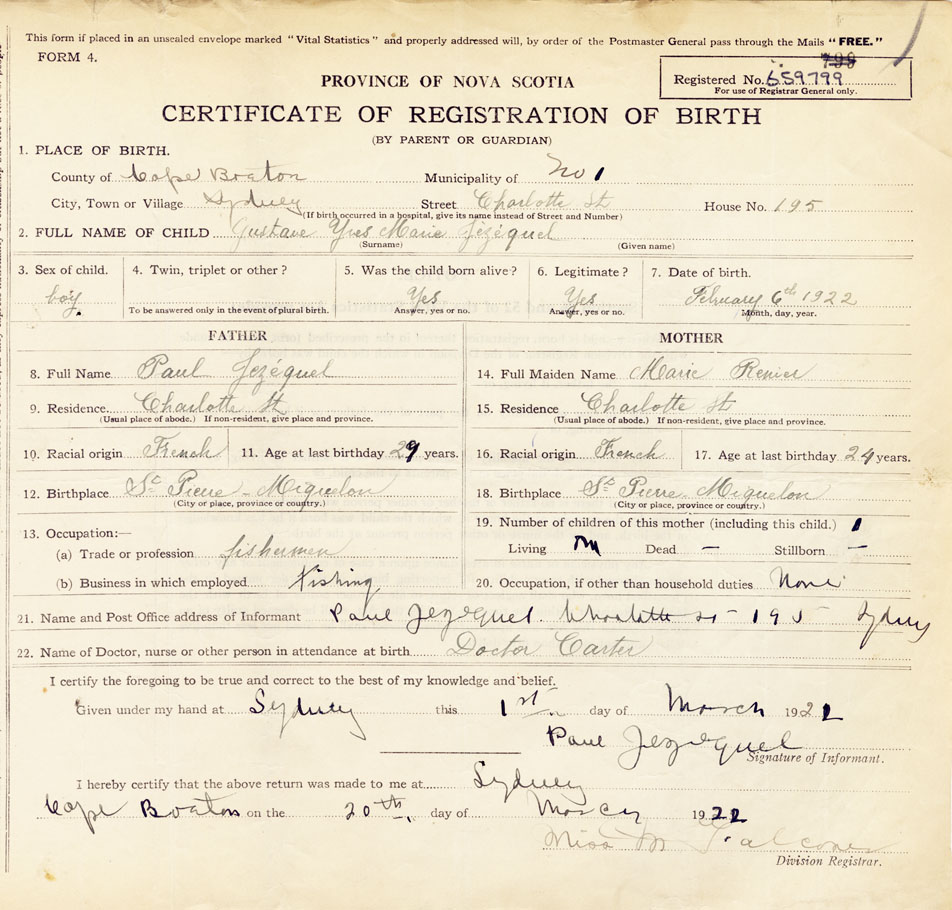 This form if placed in an unsealed envelope marked "Vital Statistics" and properly addressed will, by order of the Postmaster General pass through the Mails "FREE."
FORM 4.
799
PROVINCE OF NOVA SCOTIA
Registered No. 659799
For use of Registrar General only.
CERTIFICATE OF REGISTRATION OF BIRTH
(BY PARENT OR GUARDIAN)
1. PLACE OF BIRTH.
County of Cape Breton Municipality of No 1
City, Town or Village Sydney Street Charlotte St House No. 195
(If birth occurred in a hospital, give its name instead of Street and Number)
2. FULL NAME OF CHILD Gustave Yves Marie Jézéquel
(Surname) (Given name)
3. Sex of child. 4. Twin, triplet or other? 5. Was the child born alive? 6. Legitimate? 7. Date of birth.
boy. Yes Yes February 6th 1922
To be answered only in the event of plural birth. Answer, yes or no. Answer, yes or no. Month, day, year.
FATHER MOTHER
8. Full Name Paul Jézéquel 14. Full Maiden Name Marie Renier
9. Residence. Charlotte St 15. Residence Charlotte St
(Usual place of abode.) If non-resident, give place and province. (Usual place of abode.) If non-resident, give place and province.
10. Racial origin French 11. Age at last birthday 29 years. 16. Racial origin French 17. Age at last birthday 24 years.
12. Birthplace St Pierre - Miquelon 18. Birthplace St Pierre - Miquelon
(City or place, province or country.) (City or place, province or country.)
13. Occupation:— 19. Number of children of this mother (including this child.) 1
(a) Trade or profession fishermen Living Dead — Stillborn —
(b) Business in which employed. Fishing 20. Occupation, if other than household duties None
21. Name and Post Office address of Informant Paul Jezequel. Charlotte St 195 Sydney
22. Name of Doctor, nurse or other person in attendance at birth Doctor Carter
I certify the foregoing to be true and correct to the best of my knowledge and belief.
Given under my hand at Sydney this 1st day of March 1922
Paul Jezequel
Signature of Informant.
I hereby certify that the above return was made to me at Sydney
Cape Breton on the 20th. day of 1922
Miss M Falconer
Division Registrar.